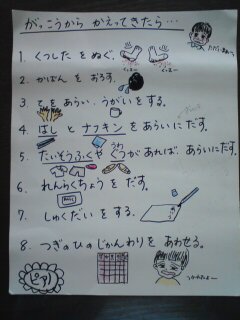 がっこうから かえってきたら…
1. くつした を ぬぐ。
2. かばん を おろす。
3. てをあらい、うがいをする。
4. はし と ナフキン をあらいにだす。
5. たいそうふくや くつがあれば、あらいにだす。
6. れんらくちょう を だす。
7. しゅくだい を する。
8. つぎのひの じかんわり を あわせる。
ピアノ